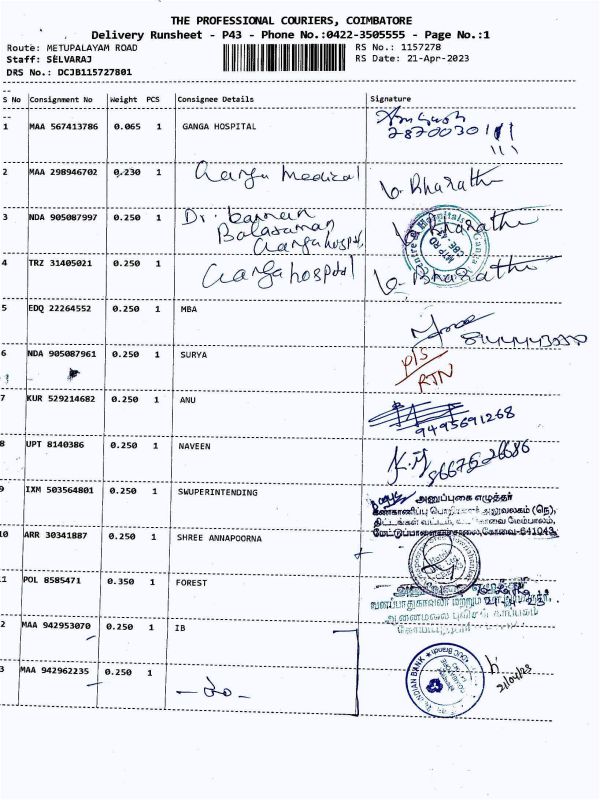 THE PROFESSIONAL COURIERS, COIMBATORE
Delivery Runsheet - P43 - Phone No.:0422-3505555 - Page No.:1
Route: METUPALAYAM ROAD
RS No.: 1157278
Staff: SELVARAJ
RS Date: 21-Apr-2023
DRS No.: DCJB115727801
S No Consignment No Weight PCS Consignee Details Signature
1 MAA 567413786 0.065 1 GANGA HOSPITAL
2 MAA 298946702 0.230 1 Ganga Medical G. Bharathi
3 NDA 905087997 0.250 1 Dr. kannan Bharathi
Balaraman
Ganga hospital
4 TRZ 31405021 0.250 1 Ganga hospital G. Bharathi
5 EDQ 22264552 0.250 1 MBA
6 NDA 905087961 0.250 1 SURYA P/S
RTN
7 KUR 529214682 0.250 1 ANU
9495691268
8 UPT 8140386 0.250 1 NAVEEN
9 IXM 503564801 0.250 1 SWUPERINTENDING
அனுப்புகை எழுத்தர்
கண்காணிப்பு பொறியாளர் அலுவலகம் (நெ),
திட்டங்கள் வட்டம், மேம்பாலம்,
மேட்டுப்பாளையம் சாலை,கோவை-641043
10 ARR 30341887 0.250 1 SHREE ANNAPOORNA
11 POL 8585471 0.350 1 FOREST
12 MAA 942953070 0.250 1 IB
13 MAA 942962235 0.250 1 - do -
INDIAN BANK
21/04/23